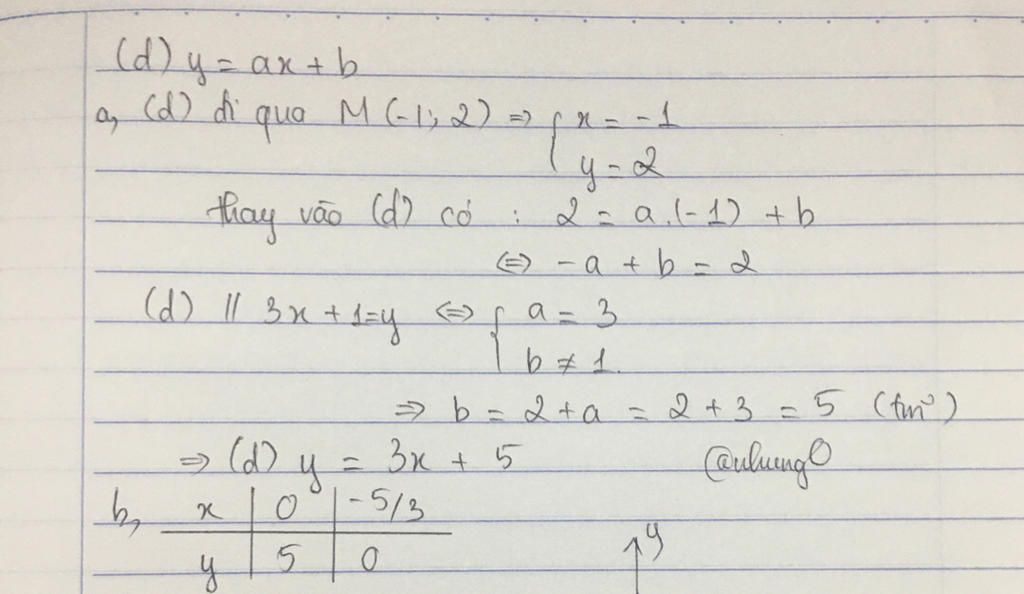 (d) y = ax + b
a, (d) đi qua M (-1; 2) => { x = -1
y = 2
thay vào (d) có : 2 = a.(-1) + b
<=> -a + b = 2
(d) // 3x + 1 = y <=> { a = 3
b ≠ 1.
=> b = 2 + a = 2 + 3 = 5 (tm)
=> (d) y = 3x + 5
b, x | 0 | -5/3
y | 5 | 0
y